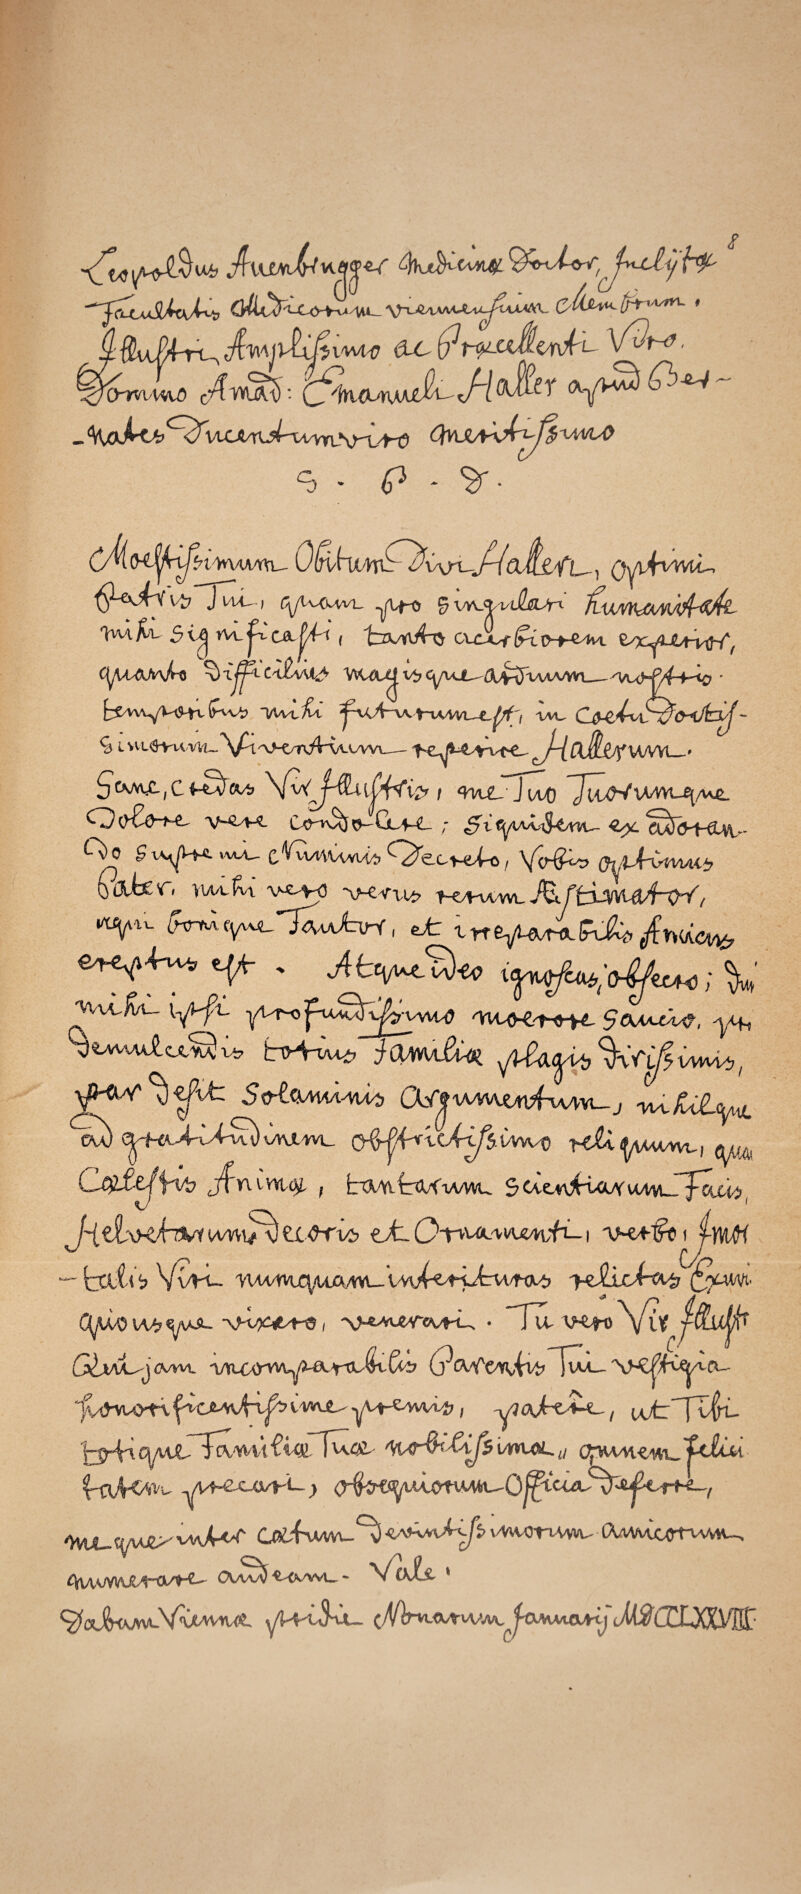 8
Leopoldus Auenbrugger Medicinæ Doctor, Inclÿtæ
Facultatis Medicorum viennensium Membrum.
Illustri, Amplissimo ac Præcellenti Viro.
Domino Amad: Emanueli Haller apud Ber-
-nates Ducentumviro meritissimo
S. P. D.
Moestissimum Obitum Divi Halleri, optimi
Patris Tui, quam pro singulari humanitate
mihi significasti, tanto acerbiorem experior,
quanto difficilius magisque arduum nostris
temporibus mihi futurum est, in Coetu Doctis-
simorum Viventium reperire Hallerum.
Sane, credas Vir Illustris, me Tuo Tuorumque
Dolore vere condolere; siquidem ex adoran-
Do supremi Numinis Decreto, Vobis optimus
Pater, mihi vero verus rerum Æstimator,
æqui bonique Fautor, et irreparabilis Amicus
ereptus est. Atque ideo ignoscas, obsecro; dum
mihi ipsi profundissimo moerore saucio,
demulcendis totius Familiæ plagis dirissimis,
par desit Solaminis Argumentum, nihilque
ad gratitudinem obstrictissimo reliquum, quam
Cælestis Animæ, tantarum Scientiarum Facis,
Helvetarum, decoris et Ornamenti, verbo, Imor
-talis Viri numquam interituras relictas Exuvi
quousque vixero, venerari. Tu vero Vir Illustr
Qui jam incomparabilis Parentis Tui vestigia
honorificentissime premis, patere, ut Tibi
totique Familiæ Tuæ nobilissimæ,, omnem felici
tatem precari, obsequiorum Officia deferre,
meque inter cætum devinctissimorum amicorum
numerare audeam. Vale.
Dabam Viennæ pridie Nonarum Januarij MDCCLXXVIII.